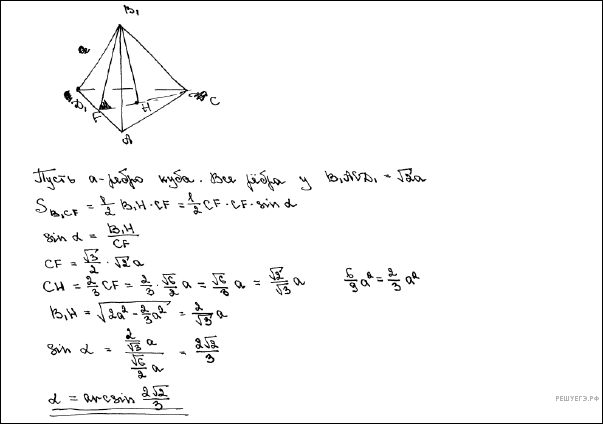 B₁
D₁
F
H
C
A
Пусть a-ребро куба. Все рёбра у B₁ACD₁ = √2a
S_{B₁CF} = 1/2 B₁H · CF = 1/2 CF · CF · sin α
sin α = B₁H/CF
CF = √3/2 · √2 a
CH = 2/3 CF = 2/3 · √6/2 a = √6/3 a = √2/√3 a 6/9 a² = 2/3 a²
B₁H = √(2a² - 2/3 a²) = 2/√3 a
sin α = (2/√3 a)/(√6/2 a) = 2√2/3
α = arcsin 2√2/3
РЕШУЕГЭ.РФ